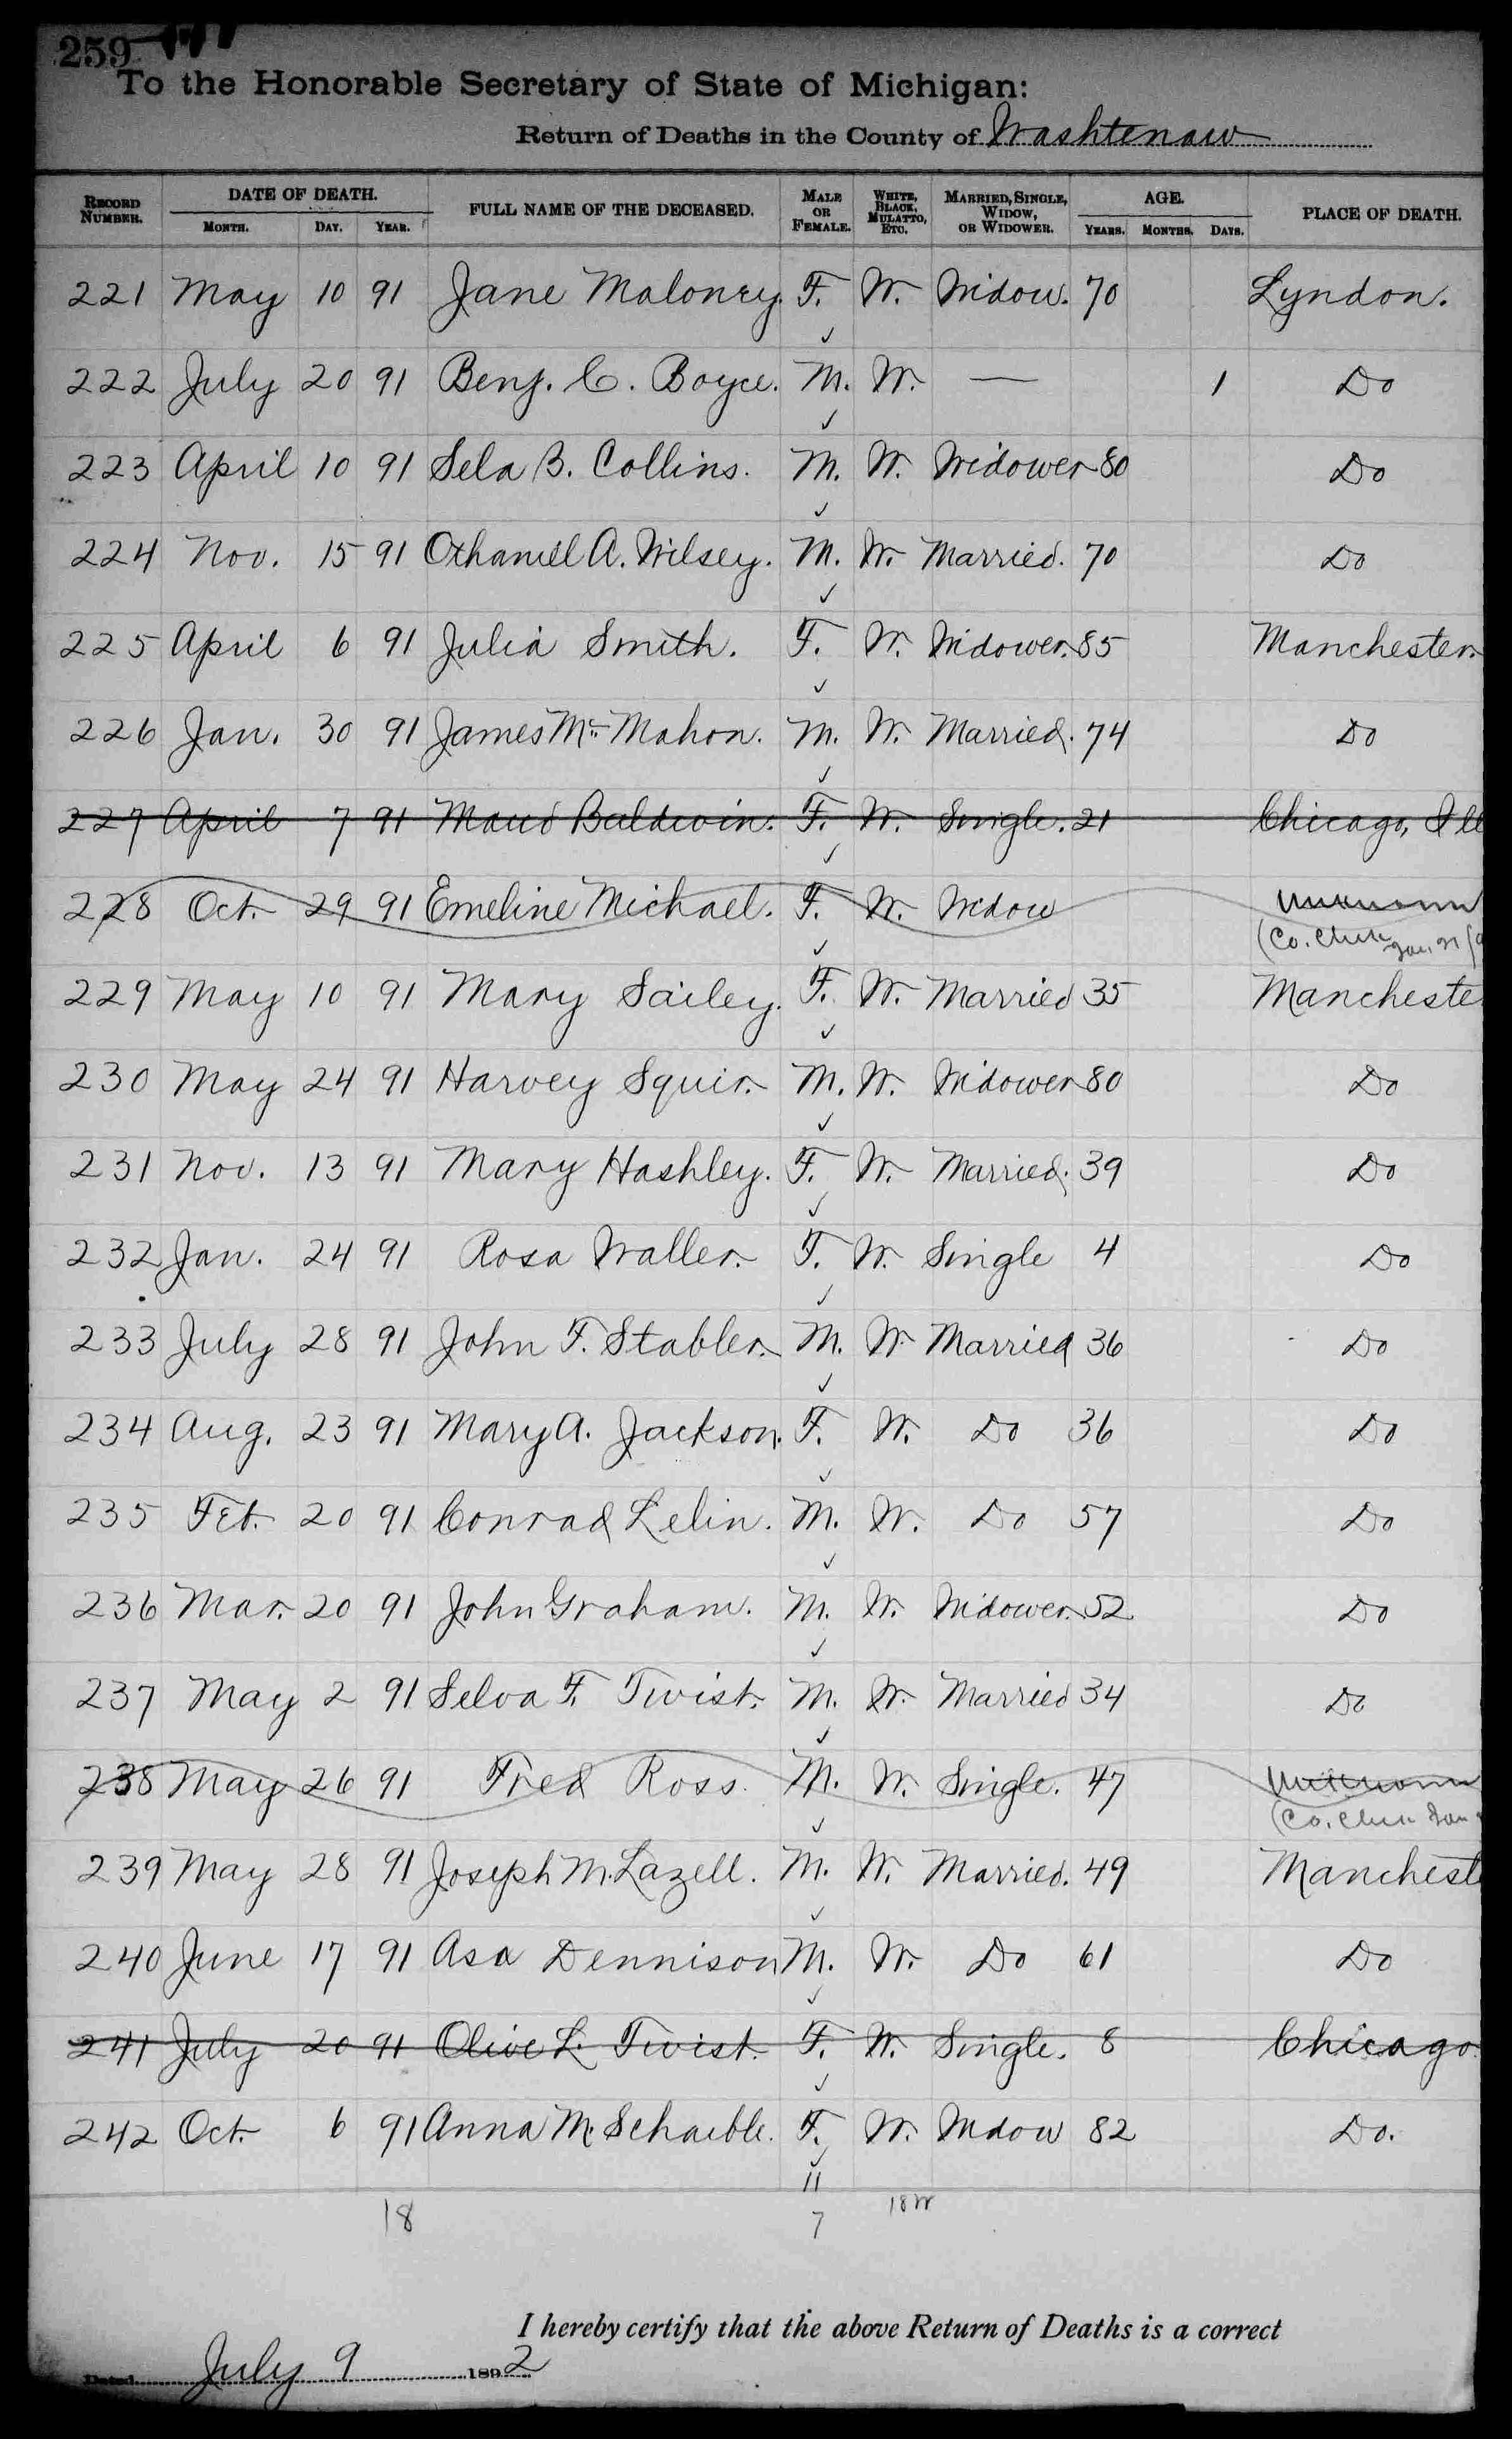 259
To the Honorable Secretary of State of Michigan:
Return of Deaths in the County of Washtenaw
RECORD NUMBER. DATE OF DEATH. MONTH. DAY. YEAR. FULL NAME OF THE DECEASED. MALE OR FEMALE. WHITE, BLACK, MULATTO, ETC. MARRIED, SINGLE, WIDOW, OR WIDOWER. AGE. YEARS. MONTHS. DAYS. PLACE OF DEATH.
221 May 10 91 Jane Maloney. F. W. Widow. 70 Lyndon.
222 July 20 91 Benj. C. Boyce. M. W. — 1 Do
223 April 10 91 Sela B. Collins. M. W. Widower 80 Do
224 Nov. 15 91 Othaniell A. Wilsey. M. W. Married. 70 Do
225 April 6 91 Julia Smith. F. W. Widower. 85 Manchester.
226 Jan. 30 91 James Mc Mahon. M. W. Married. 74 Do
227 April 7 91 Maud Baldwin. F. W. Single. 21 Chicago, Ill
228 Oct. 29 91 Emeline Michael. F. W. Widow Unknown
(Co. Clerk Jan 21
229 May 10 91 Mary Sailey. F. W. Married 35 Mancheste
230 May 24 91 Harvey Squir. M. W. Widower 80 Do
231 Nov. 13 91 Mary Hashley. F. W. Married. 39 Do
232 Jan. 24 91 Rosa Waller. F. W. Single 4 Do
233 July 28 91 John F. Stabler. M. W Married 36 Do
234 Aug. 23 91 Mary A. Jackson. F. W. Do 36 Do
235 Feb. 20 91 Conrad Lelin. M. W. Do 57 Do
236 Mar. 20 91 John Graham. M. W. Widower. 52 Do
237 May 2 91 Selva F. Twist. M. W. Married 34 Do
238 May 26 91 Fred Ross. M. W. Single. 47 Unknown
(Co. Clerk Jan
239 May 28 91 Joseph M. Lazell. M. W. Married. 49 Manchest
240 June 17 91 Asa Dennison M. W. Do 61 Do
241 July 20 91 Olive L. Twist. F. W. Single. 8 Chicago
242 Oct. 6 91 Anna M. Schaible. F. W. Widow 82 Do.
11
18 7 18 W
I hereby certify that the above Return of Deaths is a correct
Dated July 9 1892